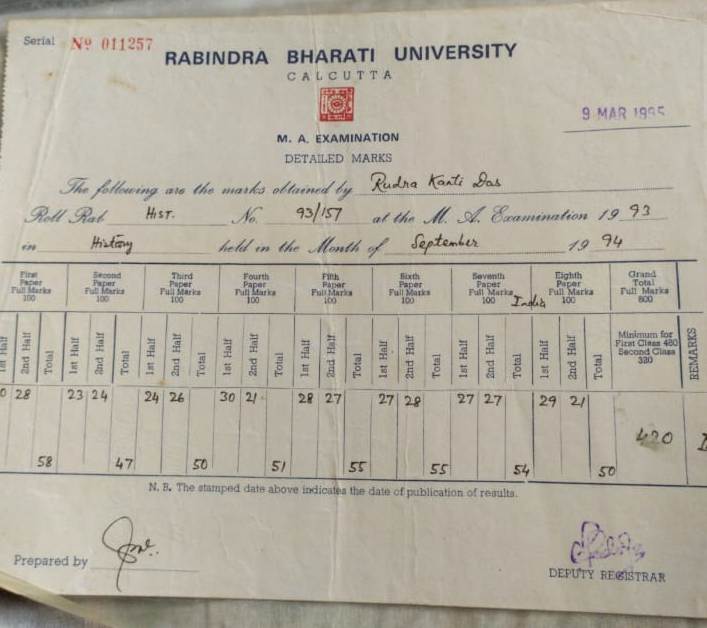 Serial Nº 011257
RABINDRA BHARATI UNIVERSITY
CALCUTTA
9 MAR 1995
M. A. EXAMINATION
DETAILED MARKS
The following are the marks obtained by Rudra Kanti Das
Roll Rab Hist. No. 93/157 at the M. A. Examination 19 93
in History held in the Month of September 19 94
First Paper Full Marks 100 Second Paper Full Marks 100 Third Paper Full Marks 100 Fourth Paper Full Marks 100 Fifth Paper Full Marks 100 Sixth Paper Full Marks 100 Seventh Paper Full Marks 100 India Eighth Paper Full Marks 100 Grand Total Full Marks 800
1st Half 2nd Half Total 1st Half 2nd Half Total 1st Half 2nd Half Total 1st Half 2nd Half Total 1st Half 2nd Half Total 1st Half 2nd Half Total 1st Half 2nd Half Total 1st Half 2nd Half Total Minimum for First Class 480 Second Class 320 REMARKS
0 28 23 24 24 26 30 21 28 27 27 28 27 27 29 21
420
58 47 50 51 55 55 54 50
N. B. The stamped date above indicates the date of publication of results.
Prepared by
DEPUTY REGISTRAR